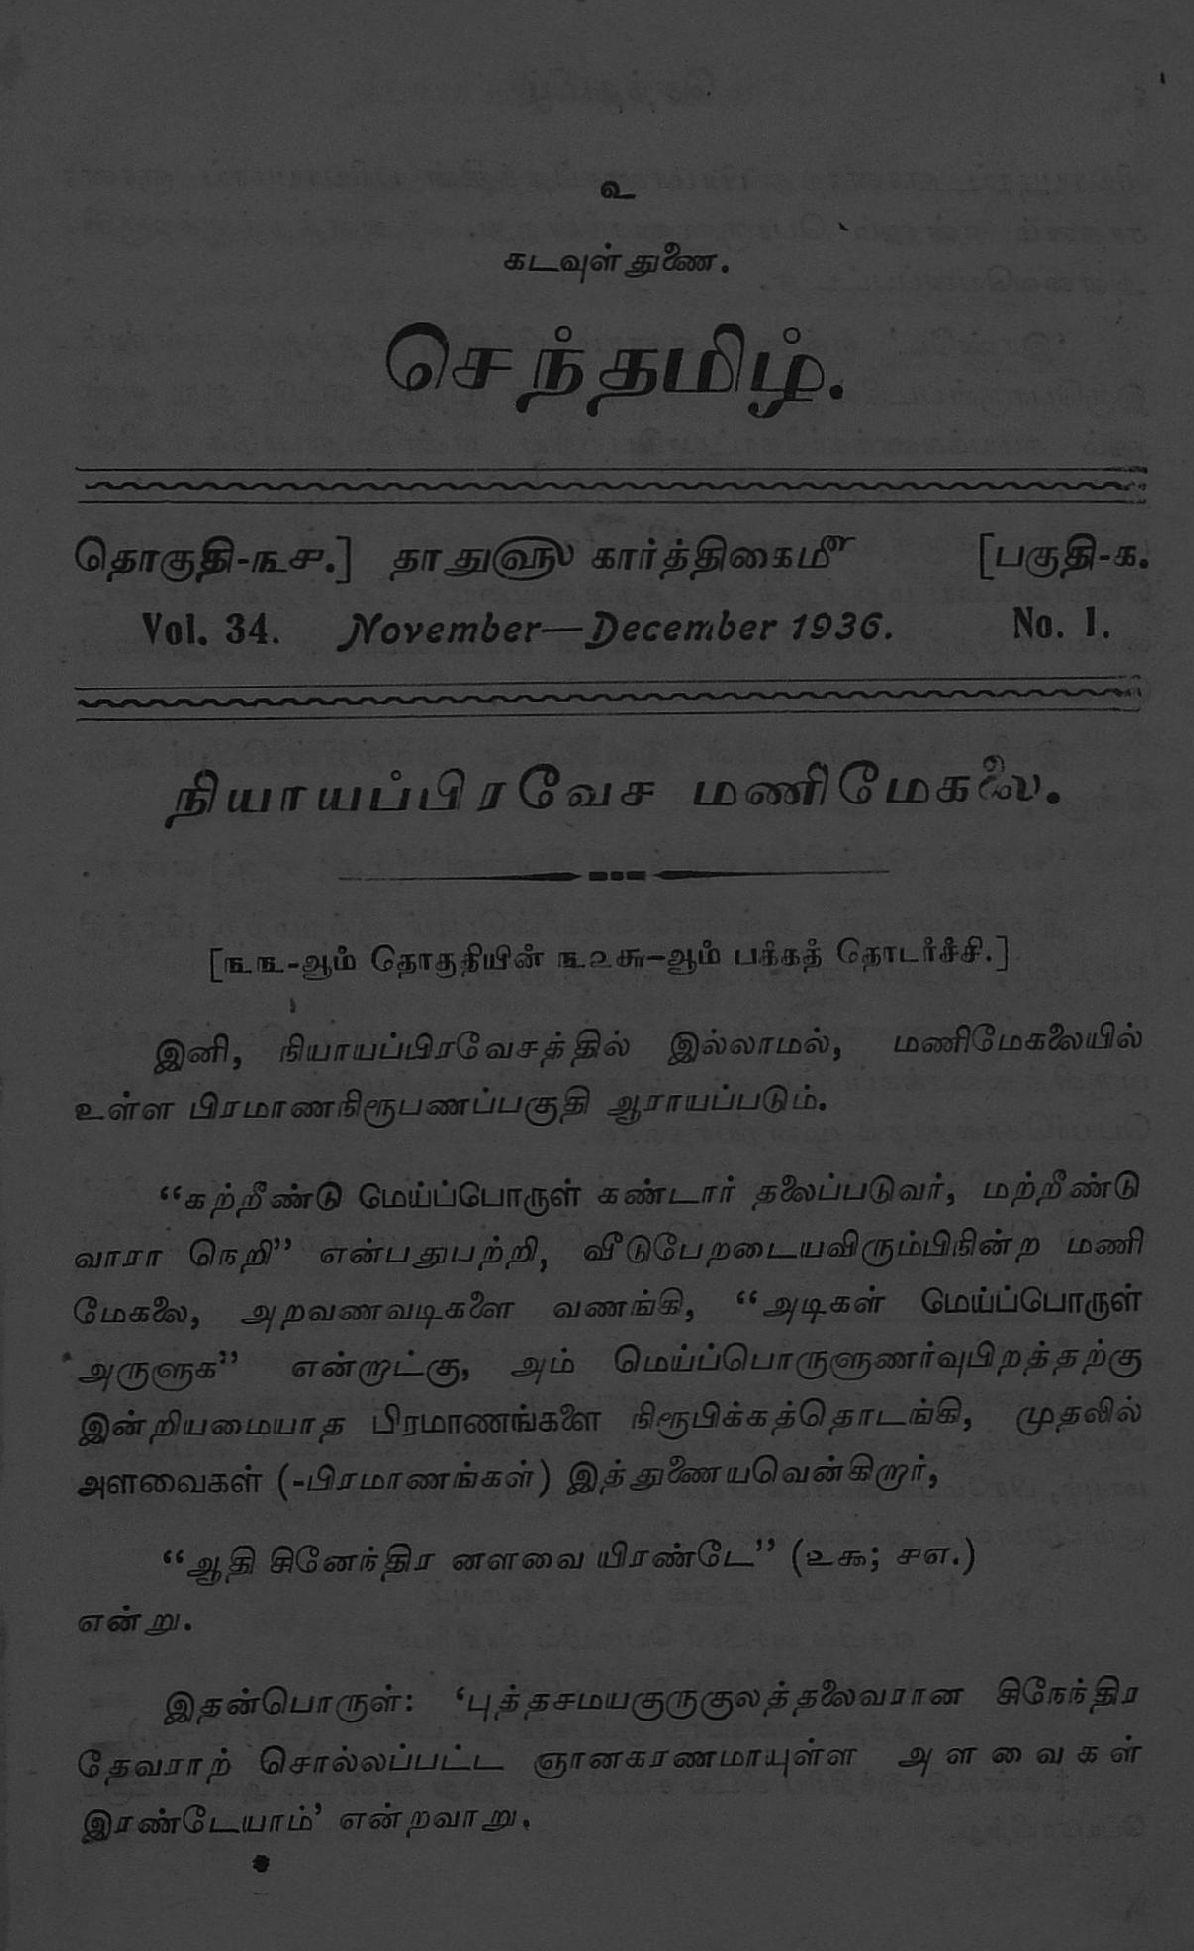 உ
கடவுள் துணை.
செந்தமிழ்.
தொகுதி-௩௪.] தாது௵ கார்த்திகைமீ௴ [பகுதி-௧.
Vol. 34. November—December 1936. No. 1.
நியாயப்பிரவேச மணிமேகலை.
[௩௩-ஆம் தொகுதியின் ௩௨௬-ஆம் பக்கத் தொடர்ச்சி.]
இனி, நியாயப்பிரவேசத்தில் இல்லாமல், மணிமேகலையில்
உள்ள பிரமாணநிரூபணப்பகுதி ஆராயப்படும்.
“கற்றீண்டு மெய்ப்பொருள் கண்டார் தலைப்படுவர், மற்றீண்டு
வாரா நெறி” என்பதுபற்றி, வீடுபேறடையவிரும்பிநின்ற மணி
மேகலை, அறவணவடிகளை வணங்கி, “அடிகள் மெய்ப்பொருள்
அருளுக” என்றாட்கு, அம் மெய்ப்பொருளுணர்வுபிறத்தற்கு
இன்றியமையாத பிரமாணங்களை நிரூபிக்கத்தொடங்கி, முதலில்
அளவைகள் (-பிரமாணங்கள்) இத்துணையவென்கிறார்,
“ஆதி சினேந்திர னளவை யிரண்டே” (௨௯; ௪௭.)
என்று.
இதன்பொருள்: ‘புத்தசமயகுருகுலத்தலைவரான சிநேந்திர
தேவராற் சொல்லப்பட்ட ஞானகரணமாயுள்ள அளவைகள்
இரண்டேயாம்’ என்றவாறு.